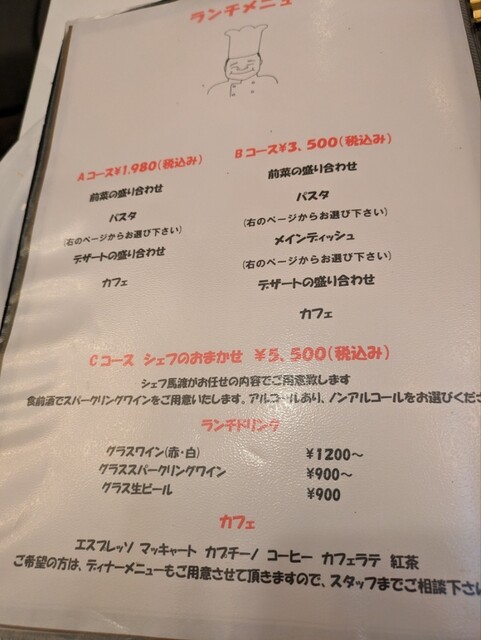 ランチメニュ
Aコース¥1,980(税込み)
前菜の盛り合わせ
パスタ
(右のページからお選び下さい)
デザートの盛り合わせ
カフェ
Bコース¥3,500(税込み)
前菜の盛り合わせ
パスタ
(右のページからお選び下さい)
メインディッシュ
(右のページからお選び下さい)
デザートの盛り合わせ
カフェ
Cコース シェフのおまかせ ¥5,500(税込み)
シェフ馬渡がお任せの内容でご用意致します
食前酒でスパークリングワインをご用意いたします。アルコールあり、ノンアルコールをお選びくださ
ランチドリンク
グラスワイン(赤・白) ¥1200〜
グラススパークリングワイン ¥900〜
グラス生ビール ¥900
カフェ
エスプレッソ マッキャート カプチーノ コーヒー カフェラテ 紅茶
ご希望の方は、ディナーメニューもご用意させて頂きますので、スタッフまでご相談下さ